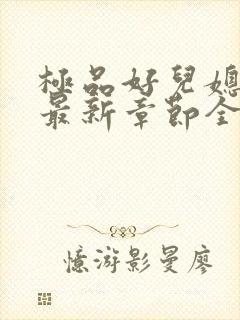 極品好兒媳
最新章節全
憶游影曼廖